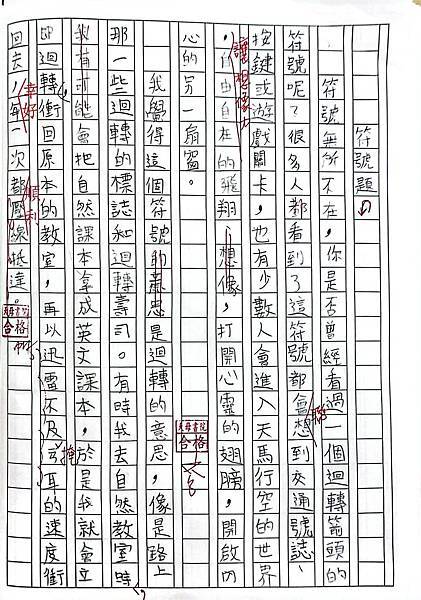 符號題
符號無所不在,你是否曾經看過一個迴轉箭頭的
符號呢?很多人都看到了這符號都會想到交通號誌、
聯
按鍵或遊戲關卡,也有少數人會進入天馬行空的世界
讓想像力
,自由自在的飛翔想像,打開心靈的翅膀,開啟內
心的另一扇窗。
合格
我覺得這個符號的意思是迴轉的意思,像是路上
那一些迴轉的標誌和迴轉壽司。有時我去自然教室時,
我有可能會把自然課本拿成英文課本,於是我就會立
掩
即迴轉衝回原本的教室,再以迅雷不及耳的速度衝
幸好
順利
回去,每一次都壓線抵達。
合格